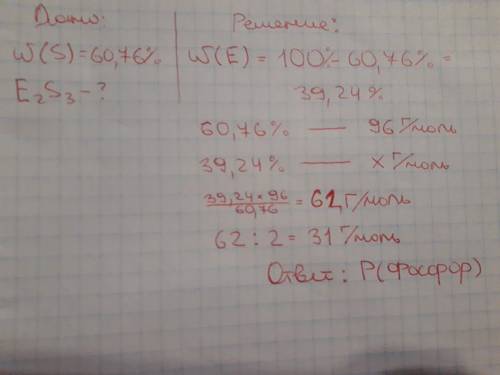 Дано:
W(S)=60,76%
E₂S₃-?
Решение:
W(E) = 100%-60,76% =
39,24%
60,76% — 96 г/моль
39,24% — x г/моль
39,24 × 96 / 60,76 = 62 г/моль
62 : 2 = 31 г/моль
Ответ: P(фосфор)